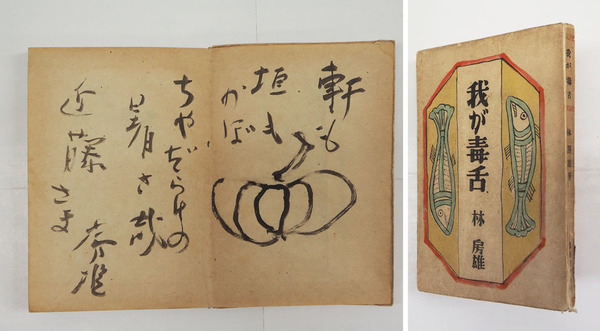 軒も
垣も
かぼ
ちやだらけの
暑さ哉
近藤さま
我が毒舌
林 房雄
我が毒舌
林 房雄